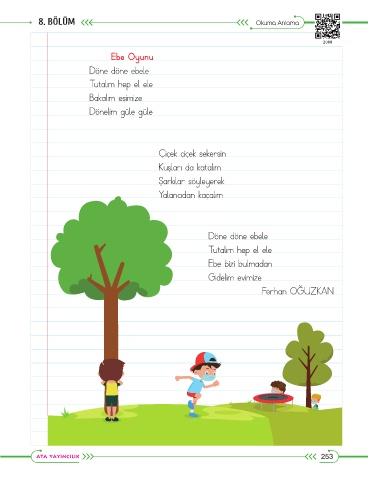 8. BÖLÜM
Okuma Anlama
Ebe Oyunu
Döne döne ebele
Tutalım hep el ele
Bakalım eşimize
Dönelim güle güle
Çiçek çiçek sekersin
Kuşları da katalım
Şarkılar söyleyerek
Yalancıdan kaçalım
Döne döne ebele
Tutalım hep el ele
Ebe bizi bulmadan
Gidelim evimize
Ferhan OĞUZKAN
ATA YAYINCILIK
253